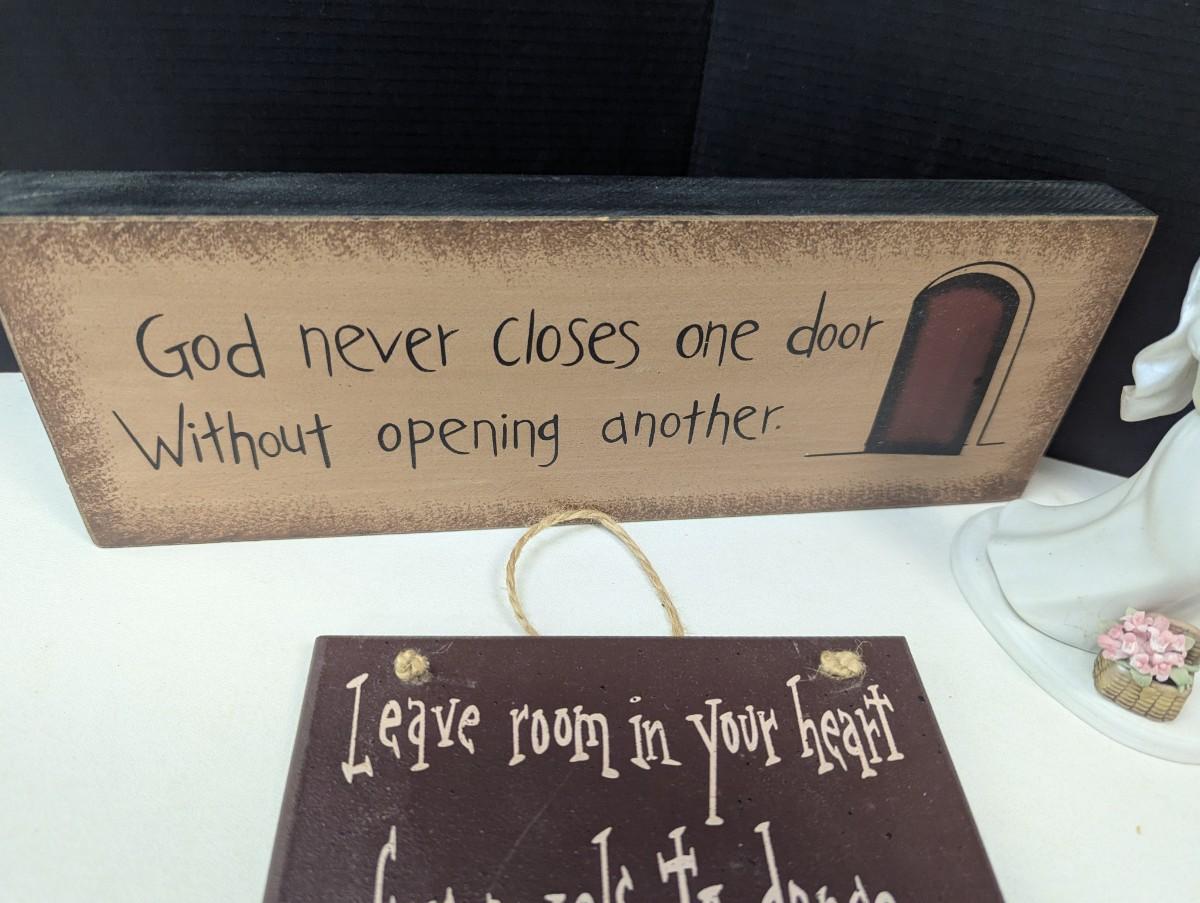 God never closes one door
Without opening another.
Leave room in your heart